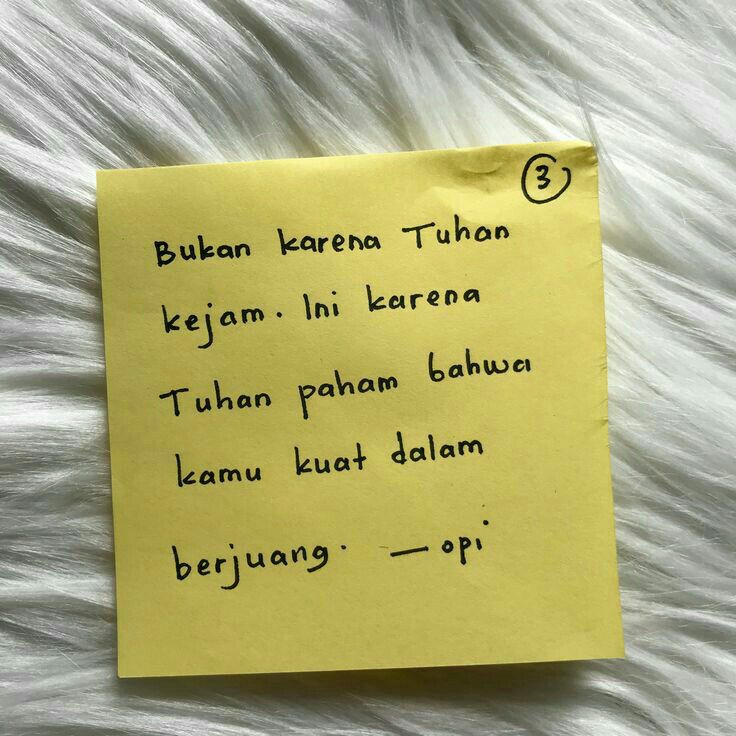 3
Bukan karena Tuhan
kejam. Ini karena
Tuhan paham bahwa
kamu kuat dalam
berjuang. — opi